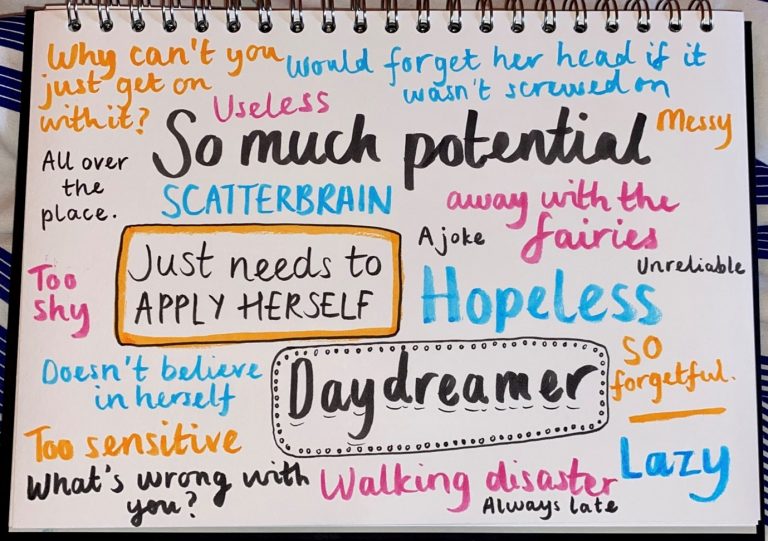 Why can't you
just get on
with it?
Would forget her head if it
wasn't screwed on
Useless
So much potential
Messy
All over
the
place.
SCATTERBRAIN
away with the
fairies
A joke
Unreliable
Just needs to
APPLY HERSELF
Too
shy
Hopeless
Doesn't believe
in herself
Daydreamer
SO
forgetful.
Too sensitive
What's wrong with
you?
Walking disaster
Always late
Lazy